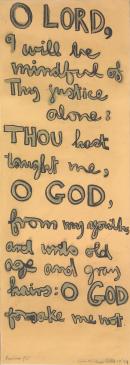 O LORD,
I will be
mindful of
Thy justice
alone:
THOU hast
taught me,
O GOD,
from my youth,
and unto old
age and grey
hairs: O GOD
forsake me not.